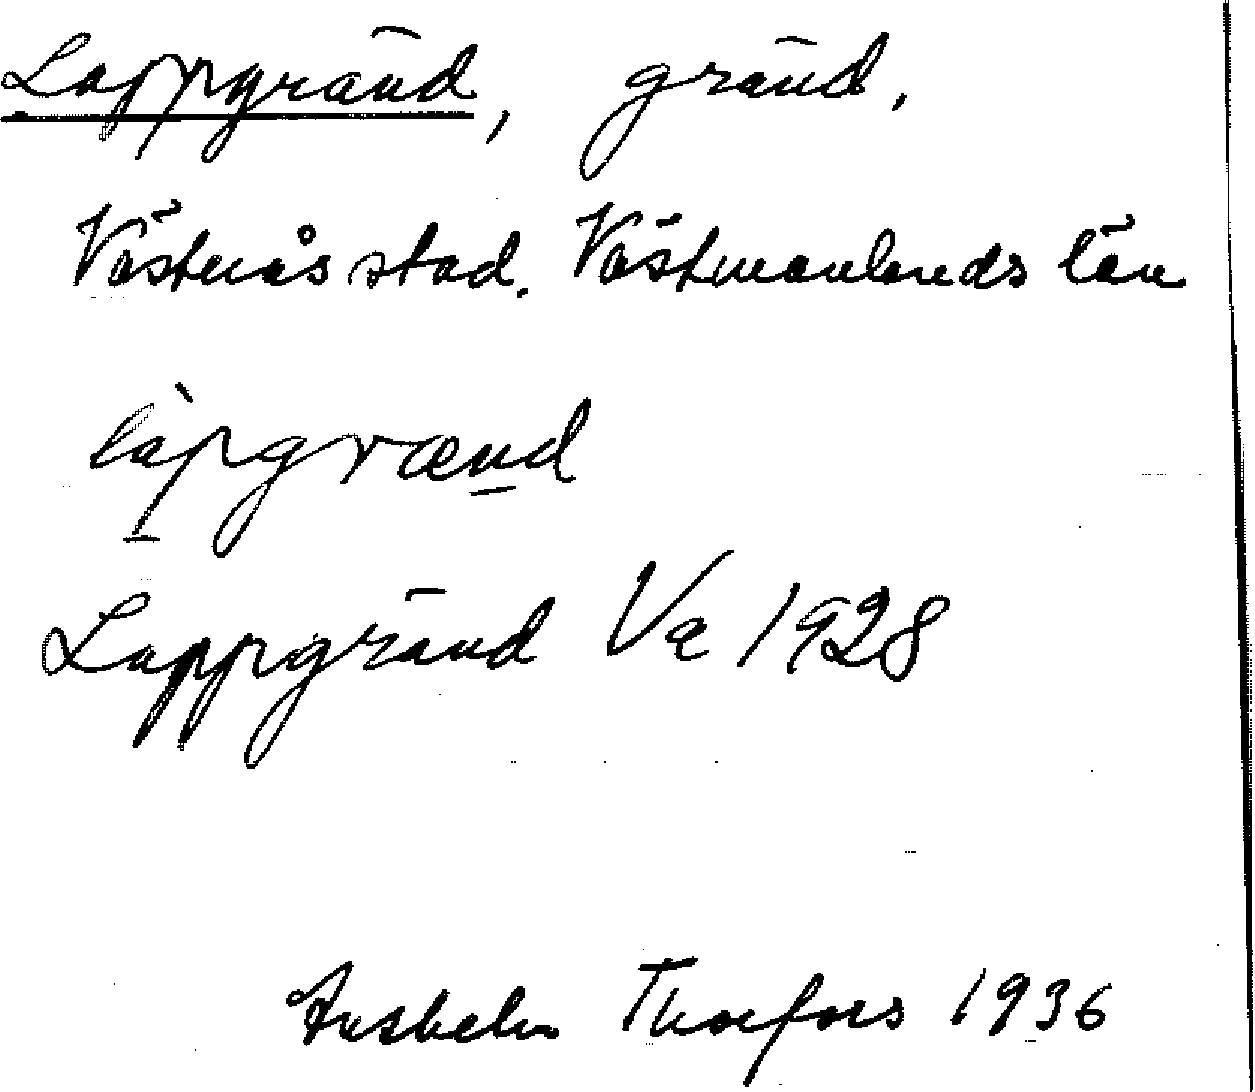 Lappgränd, gränd.
Västerås stad. Västmanlands län
làpgrænd
Lappgränd Va 1928
Thorfors 1936